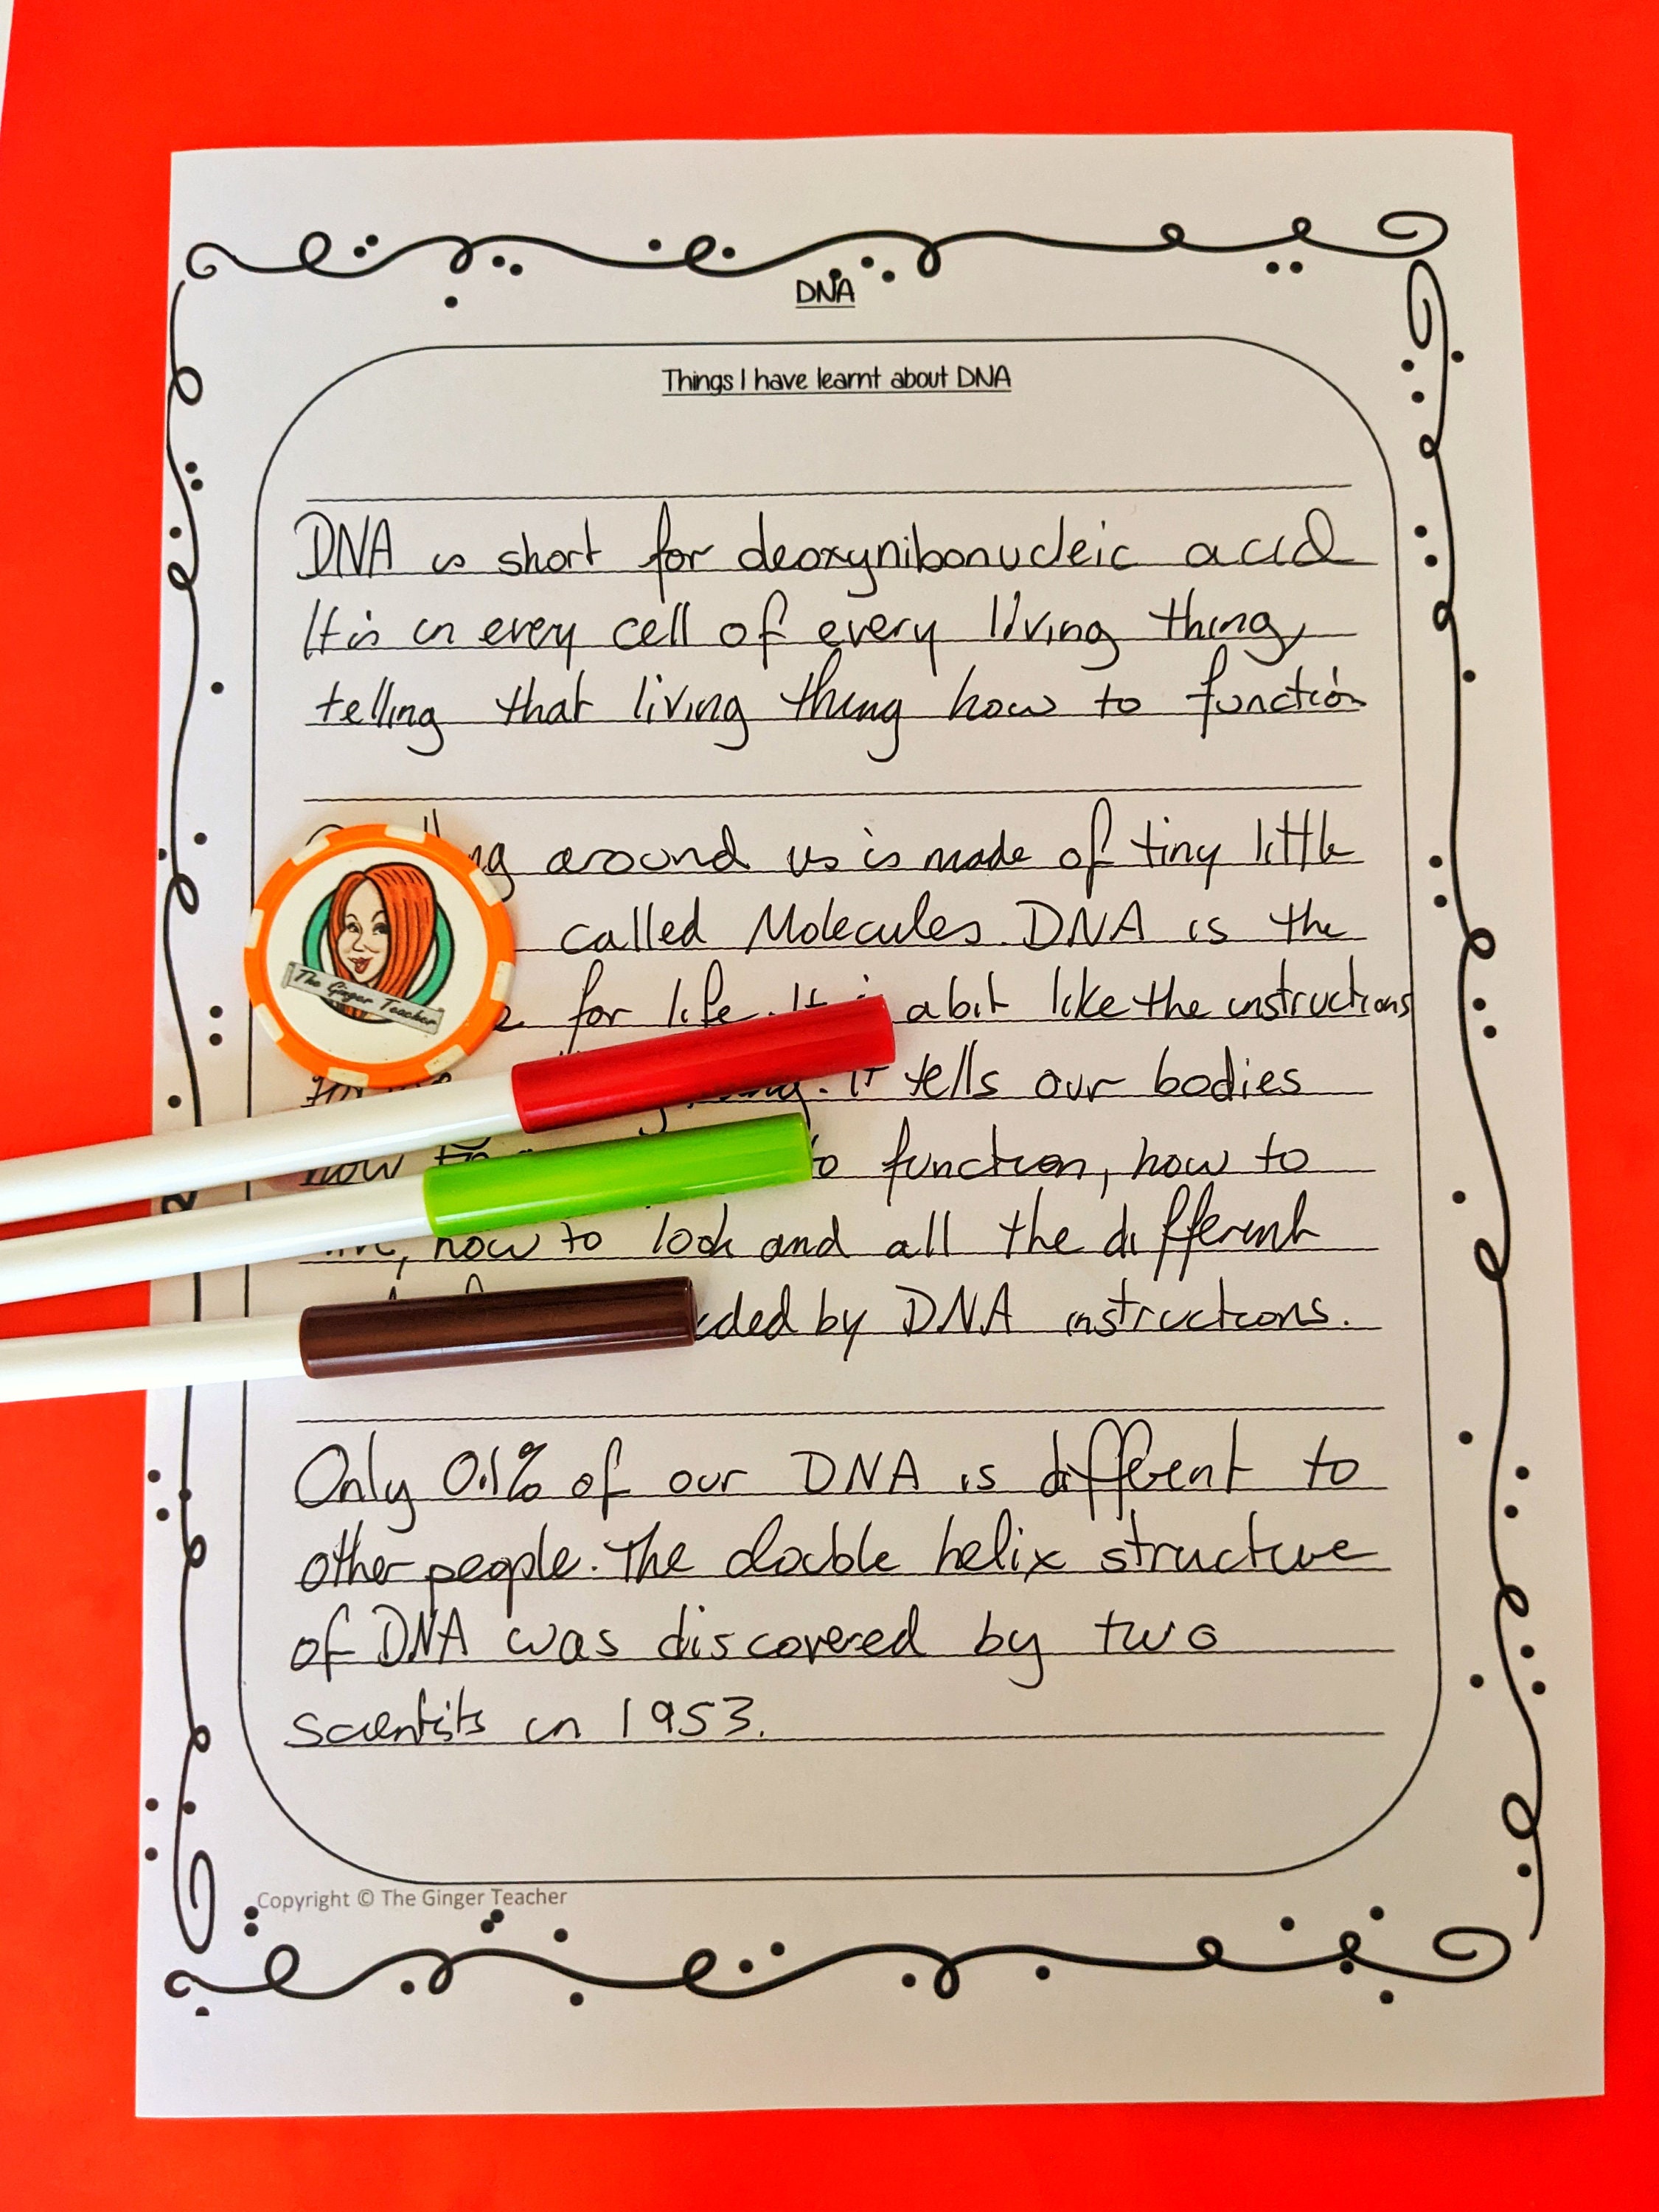 DNA
Things I have learnt about DNA
DNA is short for deoxynibonucleic acid
It is in every cell of every living thing,
telling that living thing how to function
around us is made of tiny little
called Molecules. DNA is the
for life. It a bit like the instructions
The Ginger Teacher
It tells our bodies
how to function, how to
how to look and all the different
by DNA instructions.
Only 0.1% of our DNA is different to
other people. The double helix structure
of DNA was discovered by two
scientists in 1953.
Copyright © The Ginger Teacher